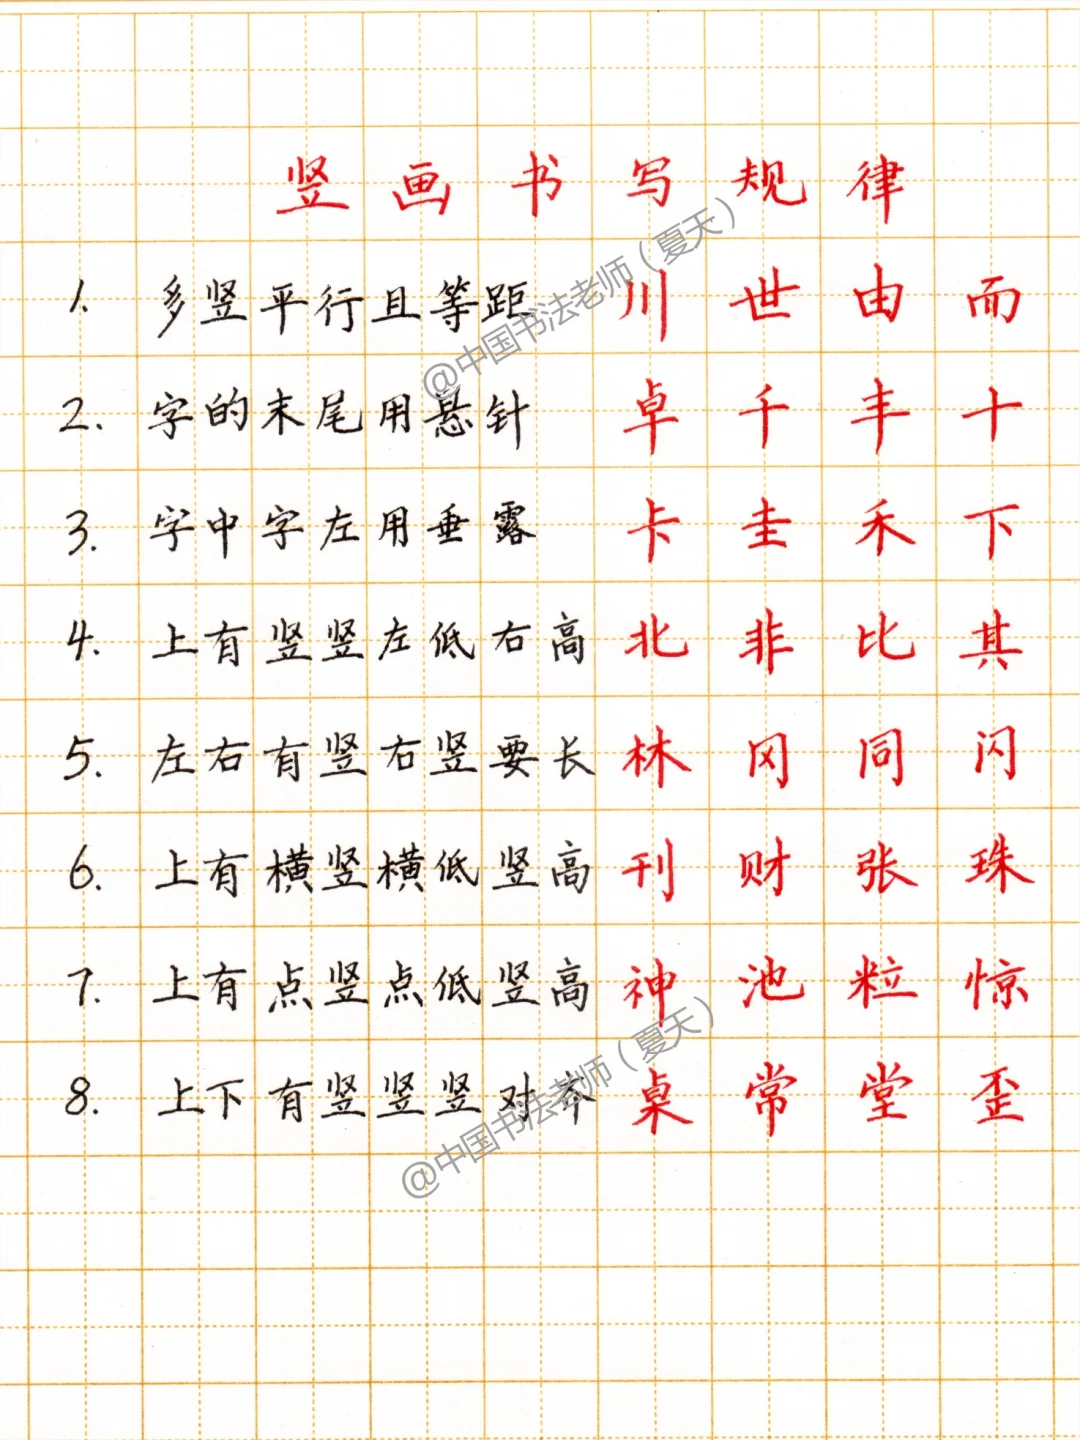 竖画书写规律
1. 多竖平行且等距 川 世 由 而
2. 字的末尾用悬针 卓 千 丰 十
3. 字中字左用垂露 卡 圭 禾 下
4. 上有竖竖左低右高 北 非 比 其
5. 左右有竖右竖要长 林 冈 同 闪
6. 上有横竖横低竖高 刊 财 张 珠
7. 上有点竖点低竖高 神 池 粒 惊
8. 上下有竖竖竖对齐 桌 常 堂 歪
@中国书法老师（夏天）
@中国书法老师（夏天）